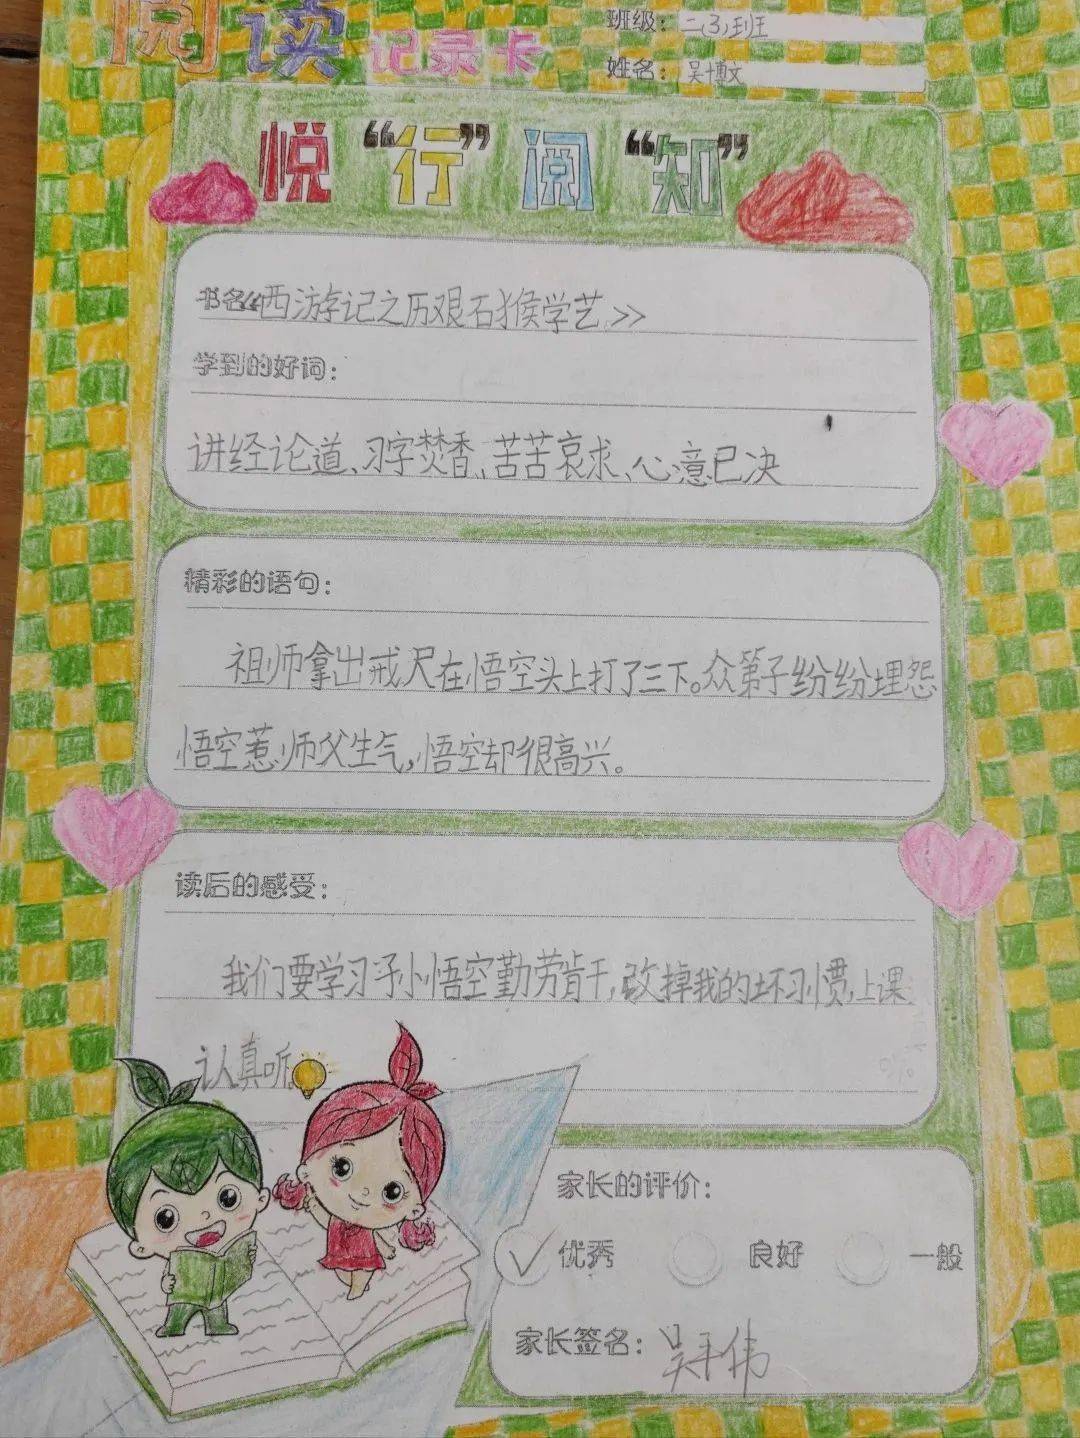 阅读记录卡
班级：二(3)班
姓名：吴博文
悦“行”阅“知”
书名《西游记之历艰石猴学艺》
学到的好词：
讲经论道、习字焚香、苦苦哀求、心意已决
精彩的语句：
祖师拿出戒尺在悟空头上打了三下。众第子纷纷埋怨
悟空惹师父生气，悟空却很高兴。
读后的感受：
我们要学习孙小悟空勤劳肯干，改掉我的坏习惯，上课
认真听
家长的评价：
优秀 良好 一般
家长签名：吴